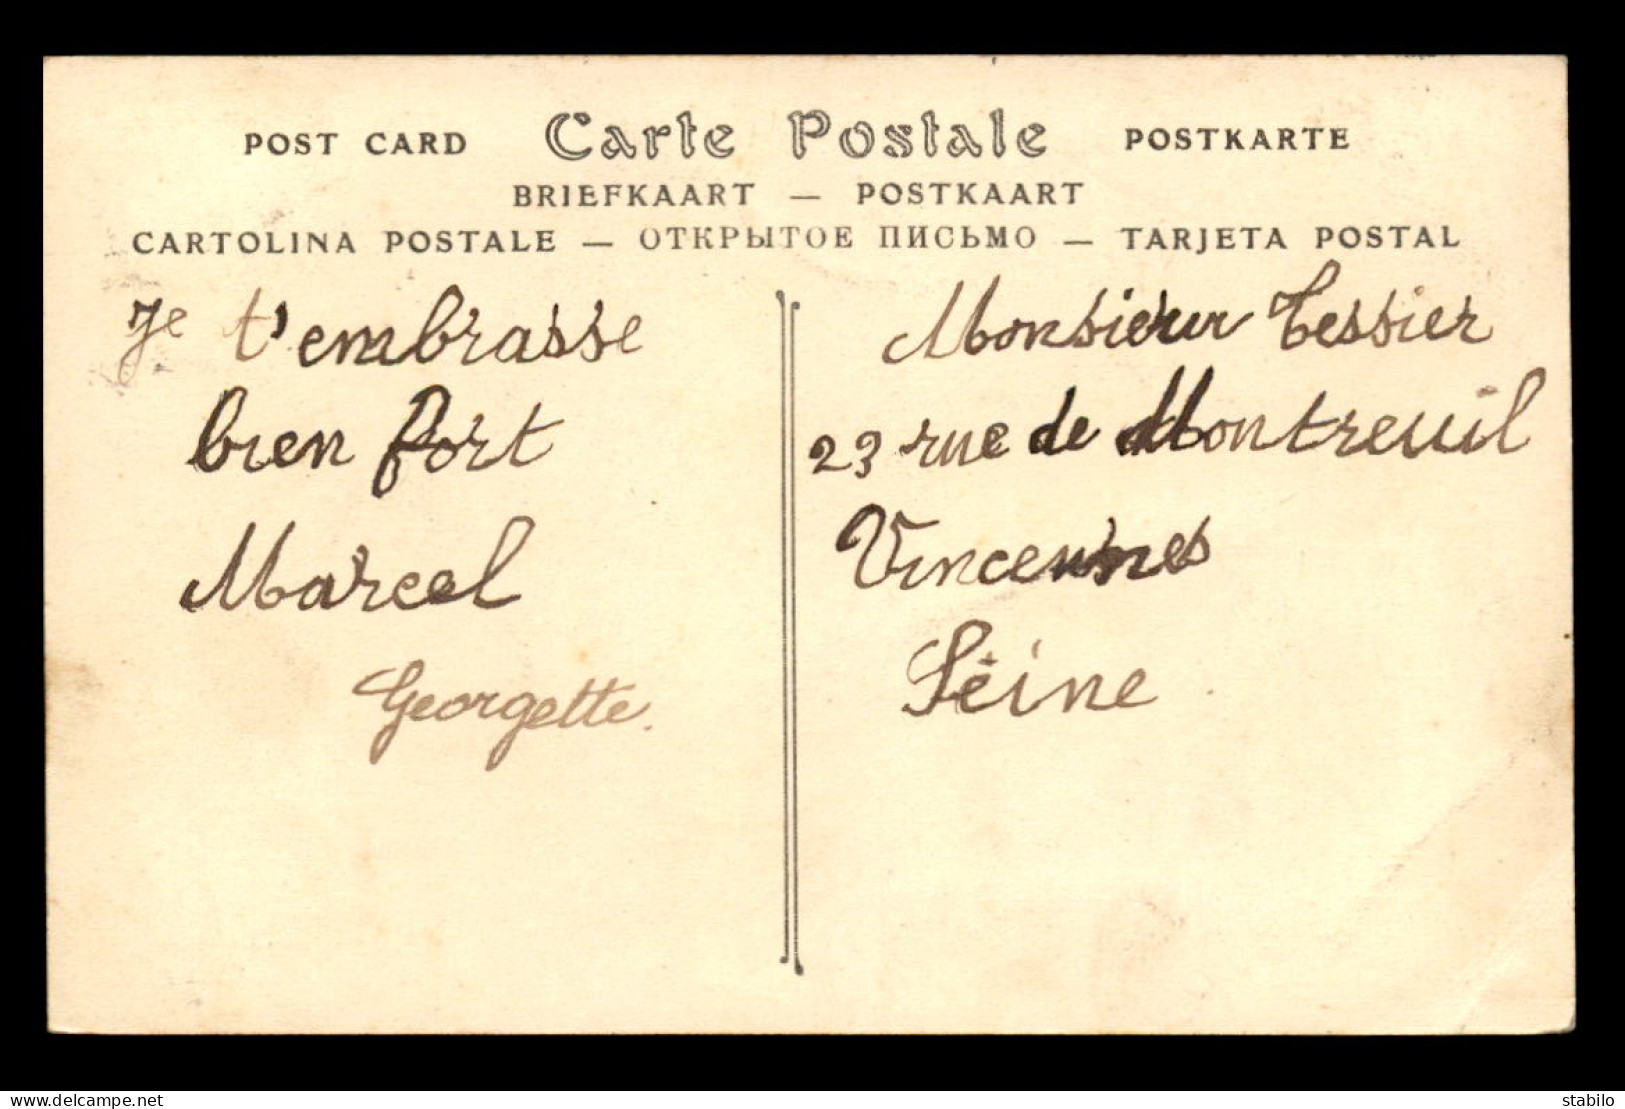 POST CARD Carte Postale POSTKARTE
BRIEFKAART — POSTKAART
CARTOLINA POSTALE — ОТКРЫТОЕ ПИСЬМО — TARJETA POSTAL
Je t'embrasse
bien fort
Marcel
Georgette.
Monsieur Tessier
23 rue de Montreuil
Vincennes
Seine
www.delcampe.net
stabilo